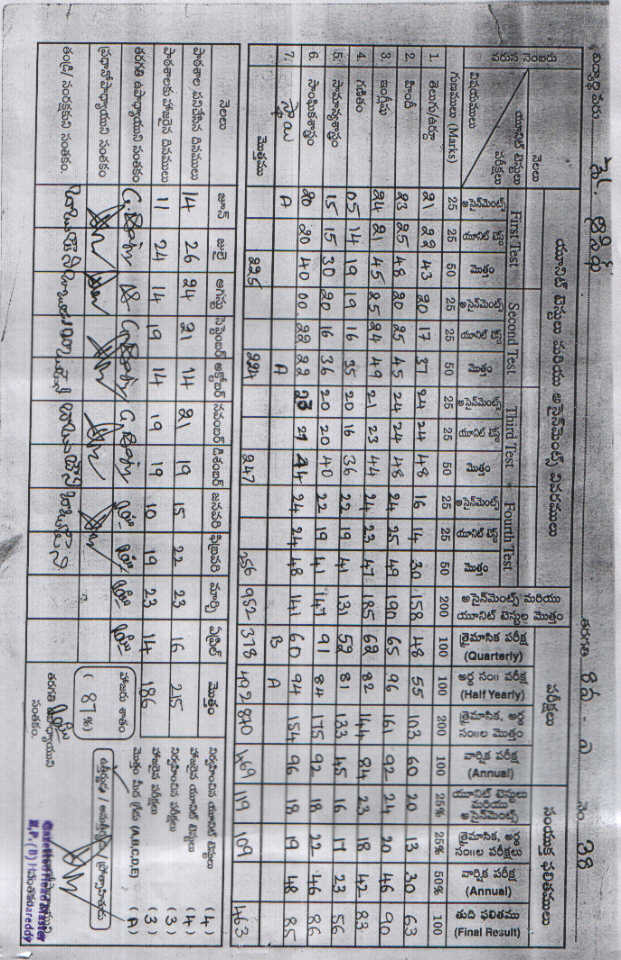 విద్యార్థి పేరు తరగతి 8వ - ఎ నెం 38
వరుస నెంబరు నెలలు యూనిట్ టెస్టులు పరీక్షలు విషయములు యూనిట్ టెస్టులు మరియు అసైన్‌మెంట్స్ వివరములు పరీక్షలు సంయుక్త ఫలితములు
First Test Second Test Third Test Fourth Test
అసైన్‌మెంట్స్ యూనిట్ టెస్ట్ మొత్తం అసైన్‌మెంట్స్ యూనిట్ టెస్ట్ మొత్తం అసైన్‌మెంట్స్ యూనిట్ టెస్ట్ మొత్తం అసైన్‌మెంట్స్ యూనిట్ టెస్ట్ మొత్తం అసైన్‌మెంట్స్ మరియు యూనిట్ టెస్టుల మొత్తం త్రైమాసిక పరీక్ష (Quarterly) అర్థ సం॥ పరీక్ష (Half Yearly) త్రైమాసిక, అర్థ సం॥ల మొత్తం వార్షిక పరీక్ష (Annual) యూనిట్ టెస్టులు మరియు అసైన్‌మెంట్స్ త్రైమాసిక, అర్థ సం॥ల పరీక్షలు వార్షిక పరీక్ష (Annual) తుది ఫలితము (Final Result)
గుణములు (Marks) 25 25 50 25 25 50 25 25 50 25 25 50 200 100 100 200 100 25% 25% 50% 100
1. తెలుగు/ఉర్దూ 21 22 43 20 17 37 24 24 48 16 14 30 158 48 55 103 60 20 13 30 63
2. హిందీ 23 25 48 20 25 45 24 24 48 24 25 49 190 65 96 161 92 24 20 46 90
3. ఇంగ్లీషు 24 21 45 25 24 49 21 23 44 24 23 47 185 62 82 144 84 23 18 42 83
4. గణితం 05 14 19 19 16 35 20 16 36 22 19 41 131 52 81 133 45 16 17 23 56
5. సామాన్యశాస్త్రం 15 15 30 20 16 36 20 20 40 22 19 41 147 91 84 175 92 18 22 46 86
6. సాంఘికశాస్త్రం 20 20 40 00 22 22 23 21 44 24 24 48 141 60 94 154 96 18 19 48 85
7. A A B A
మొత్తము 225 224 247 256 952 378 492 870 469 119 109 463
నెలలు జూన్ జులై ఆగస్టు సెప్టెంబర్ అక్టోబర్ నవంబర్ డిశంబర్ జనవరి ఫిబ్రవరి మార్చి ఏప్రిల్ మొత్తం
పాఠశాల పనిచేసిన దినములు 14 26 24 21 14 21 19 15 22 23 16 215
పాఠశాలకు హాజరైన దినములు 11 24 14 19 14 19 19 10 19 23 14 186
తరగతి ఉపాధ్యాయుని సంతకం
ప్రధానోపాధ్యాయుని సంతకం
తండ్రి/ సంరక్షకుని సంతకం.
హాజరు శాతం
( 87 %)
తరగతి ఉపాధ్యాయుని సంతకం.
నిర్వహించిన యూనిట్ టెస్టులు (4)
హాజరైన యూనిట్ టెస్టులు (4)
నిర్వహించిన పరీక్షలు (3)
హాజరైన పరీక్షలు (3)
మొత్తం మీద గ్రేడు (A,B,C,D,E) (A)
Gazetted Head Master